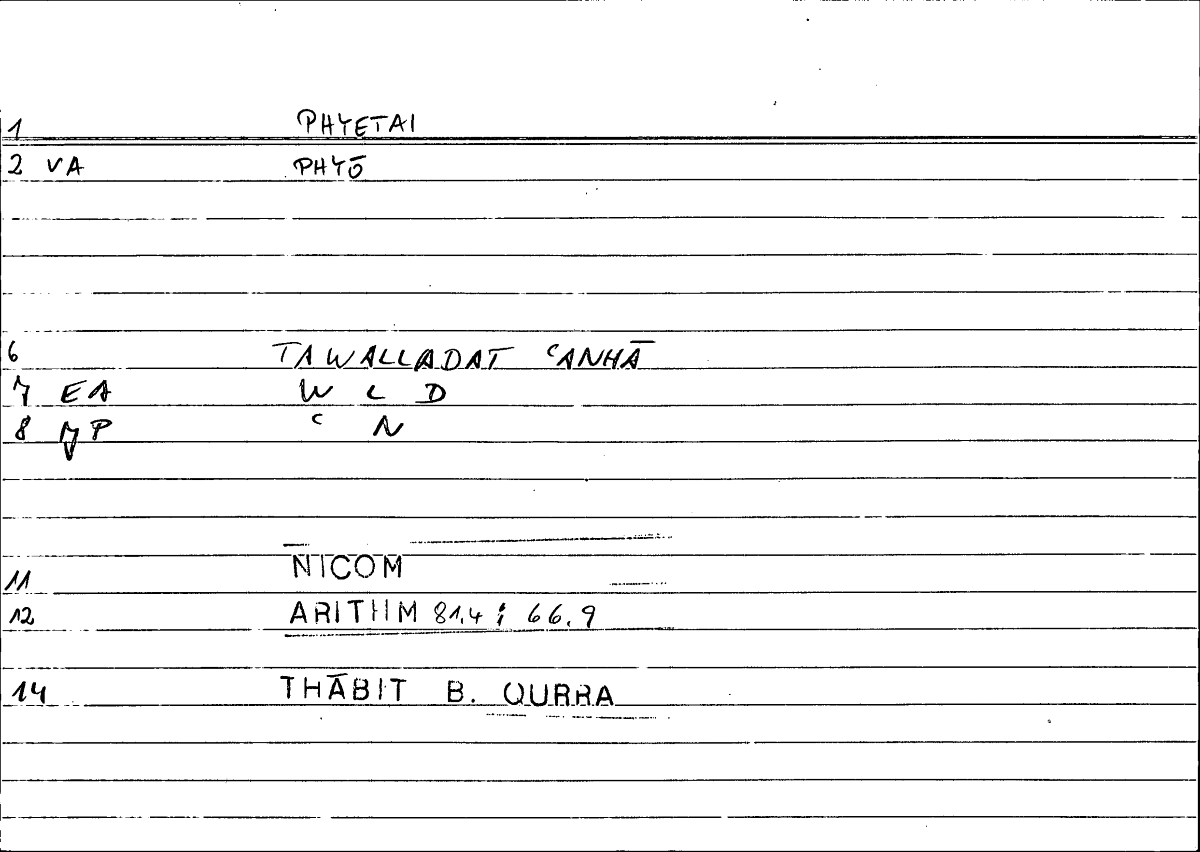 1 PHYETAI
2 VA PHYŌ
6 TAWALLADAT ʿANHĀ
7 EA W L D
8 JP ʿ N
11 NICOM
12 ARITHM 81,4 ; 66,9
14 THĀBIT B. QURRA